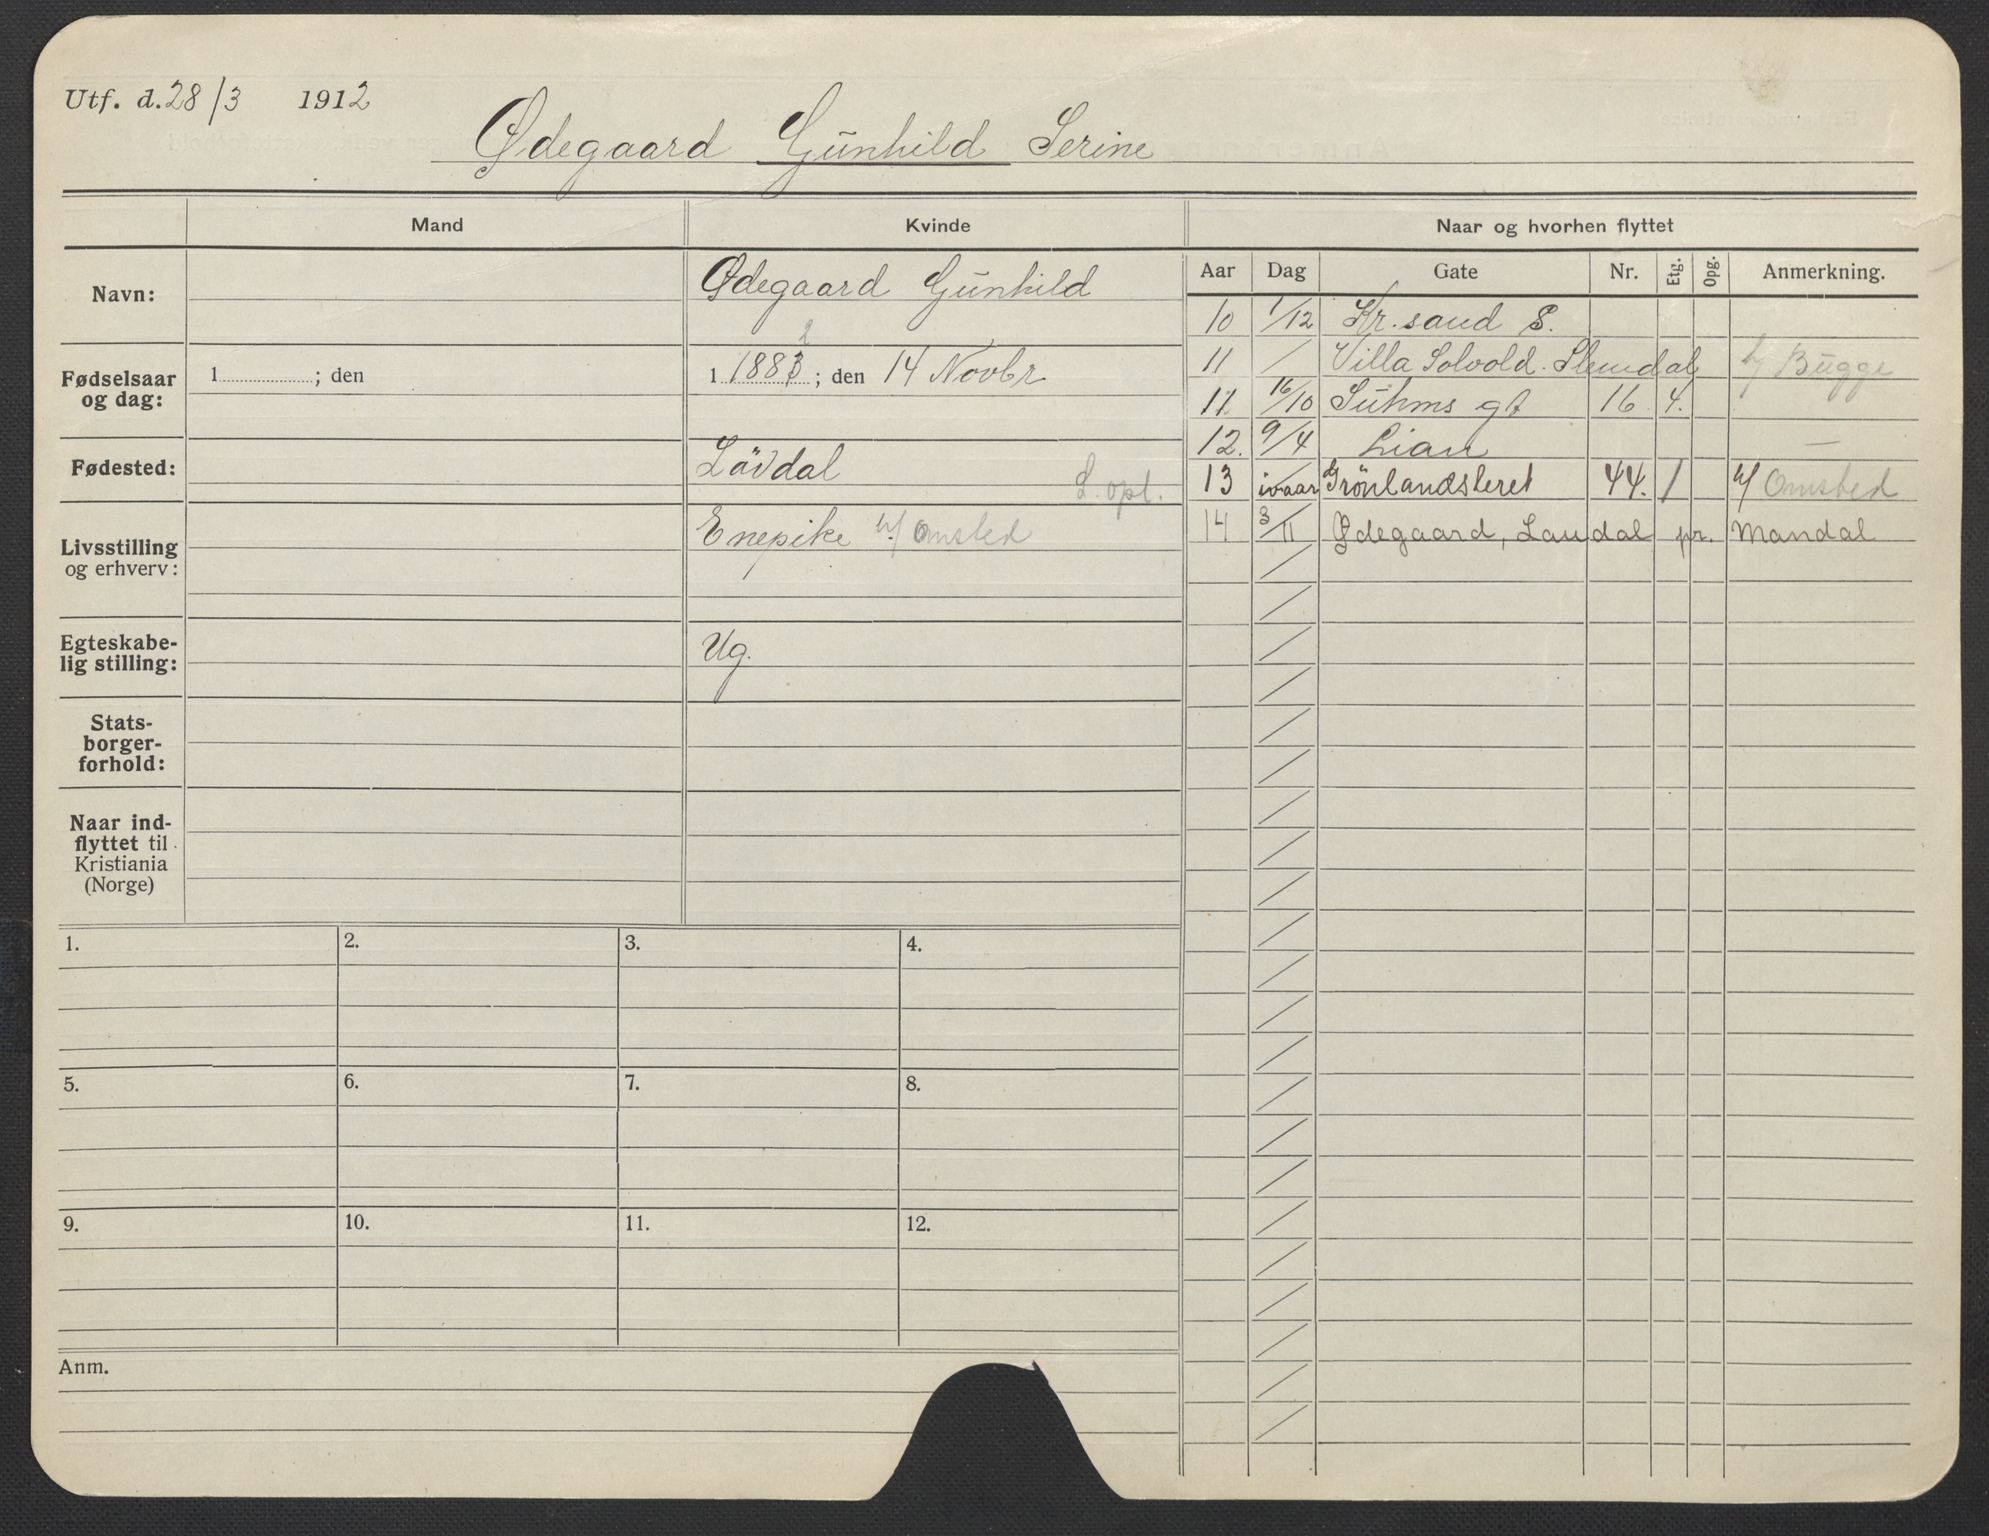 Utf. d. 28/3 1912
Ødegaard Gunhild Serine
Mand Kvinde Naar og hvorhen flyttet
Aar Dag Gate Nr. Etg. Opg. Anmerkning.
Navn: Ødegaard Gunhild
Fødselsaar og dag: 1 ; den 1 1883 2 ; den 14 Novbr
Fødested: Lövdal L. opl.
Livsstilling og erhverv: Enepike h/ Omsted
Egteskabe-
lig stilling: Ug.
Stats-
borger-
forhold:
Naar ind-
flyttet til
Kristiania
(Norge)
10 1/12 Kr.sand S.
11 / Villa Solvold. Slemdal h/ Bugge
11 16/10 Suhms gt 16 4.
12. 9/4 Lian —
13 ivaar Grönlandsleret 44. 1 h/ Omsted
14 3/11 Ødegaard, Laudal pr. Mandal
1. 2. 3. 4.
5. 6. 7. 8.
9. 10. 11. 12.
Anm.